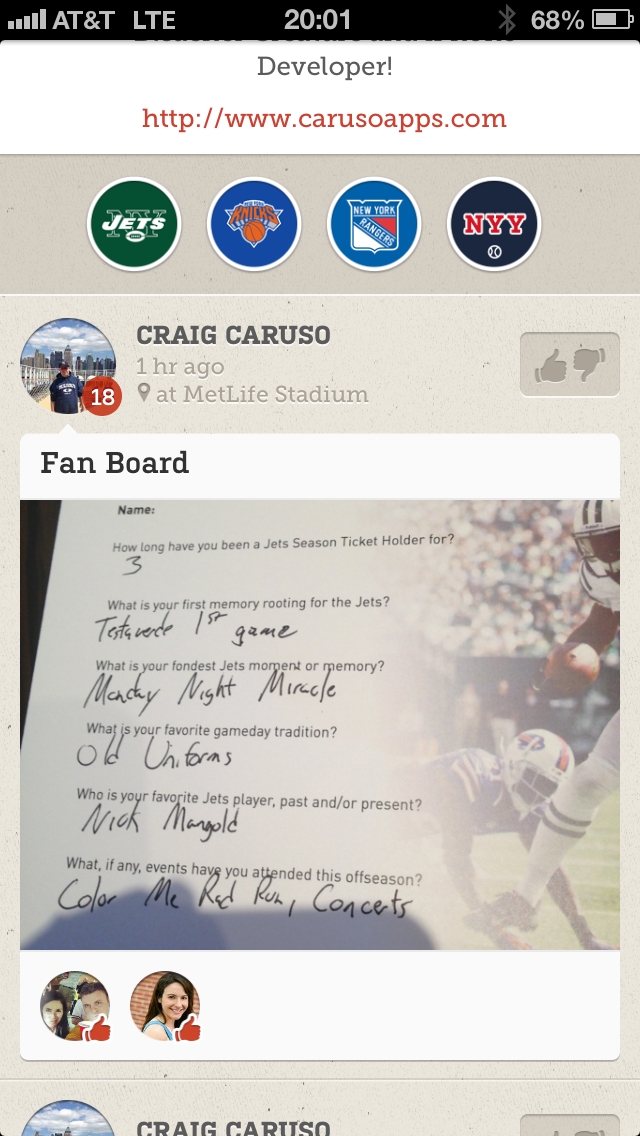 AT&T LTE 20:01 68%
Developer!
http://www.carusoapps.com
NY JETS NEW YORK KNICKS NEW YORK RANGERS NYY
CRAIG CARUSO
1 hr ago
at MetLife Stadium
18
Fan Board
Name:
How long have you been a Jets Season Ticket Holder for?
3
What is your first memory rooting for the Jets?
Testaverde 1st game
What is your fondest Jets moment or memory?
Monday Night Miracle
What is your favorite gameday tradition?
Old Uniforms
Who is your favorite Jets player, past and/or present?
Nick Mangold
What, if any, events have you attended this offseason?
Color Me Rad Run, Concerts
CRAIG CARUSO